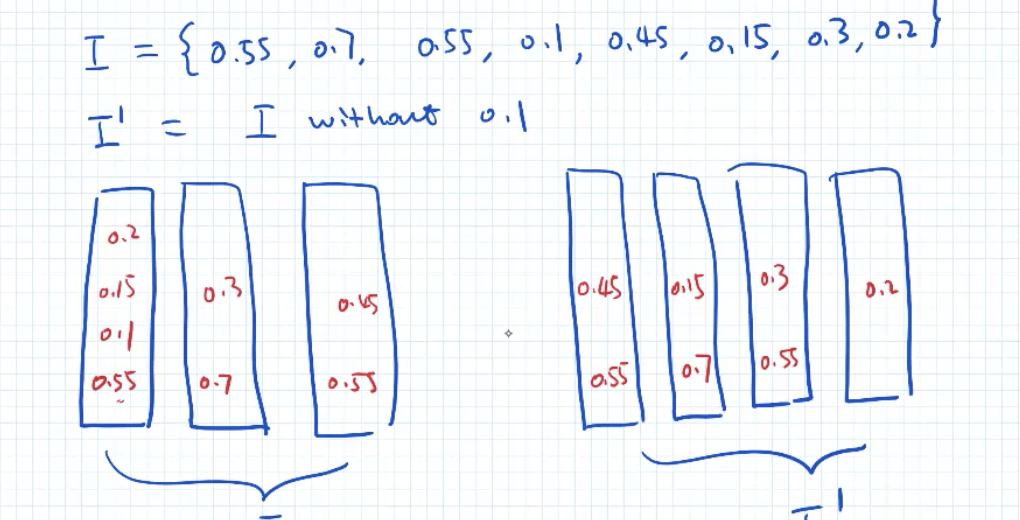 I = { 0.55, 0.7, 0.55, 0.1, 0.45, 0.15, 0.3, 0.2 }
I' = I without 0.1
0.2
0.15
0.1
0.55
0.3
0.7
0.45
0.55
0.45
0.55
0.15
0.7
0.3
0.55
0.2
I'